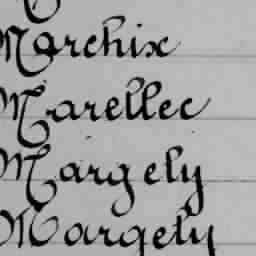 Marchix
Marellec
Margely
Margely